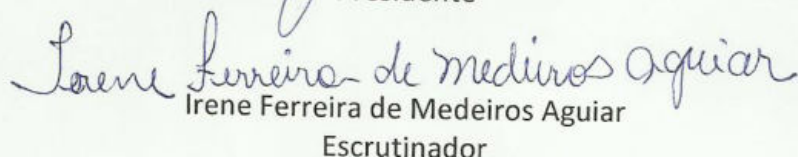 Presidente
Irene Ferreira de Medeiros Aguiar
Irene Ferreira de Medeiros Aguiar
Escrutinador